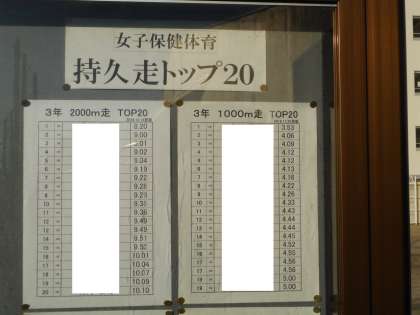 女子保健体育
持久走トップ20
3年 2000m走 TOP20
1 8.20
2 9.00
3 9.01
4 9.02
5 9.04
6 9.19
7 9.22
8 9.28
9 9.28
10 9.31
11 9.36
12 9.49
13 9.49
14 9.51
15 9.52
16 10.01
17 10.04
18 10.07
19 10.09
20 10.10
3年 1000m走 TOP20
1 3.53
2 4.06
3 4.09
4 4.12
5 4.12
6 4.13
7 4.18
8 4.22
9 4.26
10 4.33
11 4.43
12 4.44
13 4.44
14 4.45
15 4.52
16 4.55
17 4.56
18 4.56
19 5.00
19 5.00